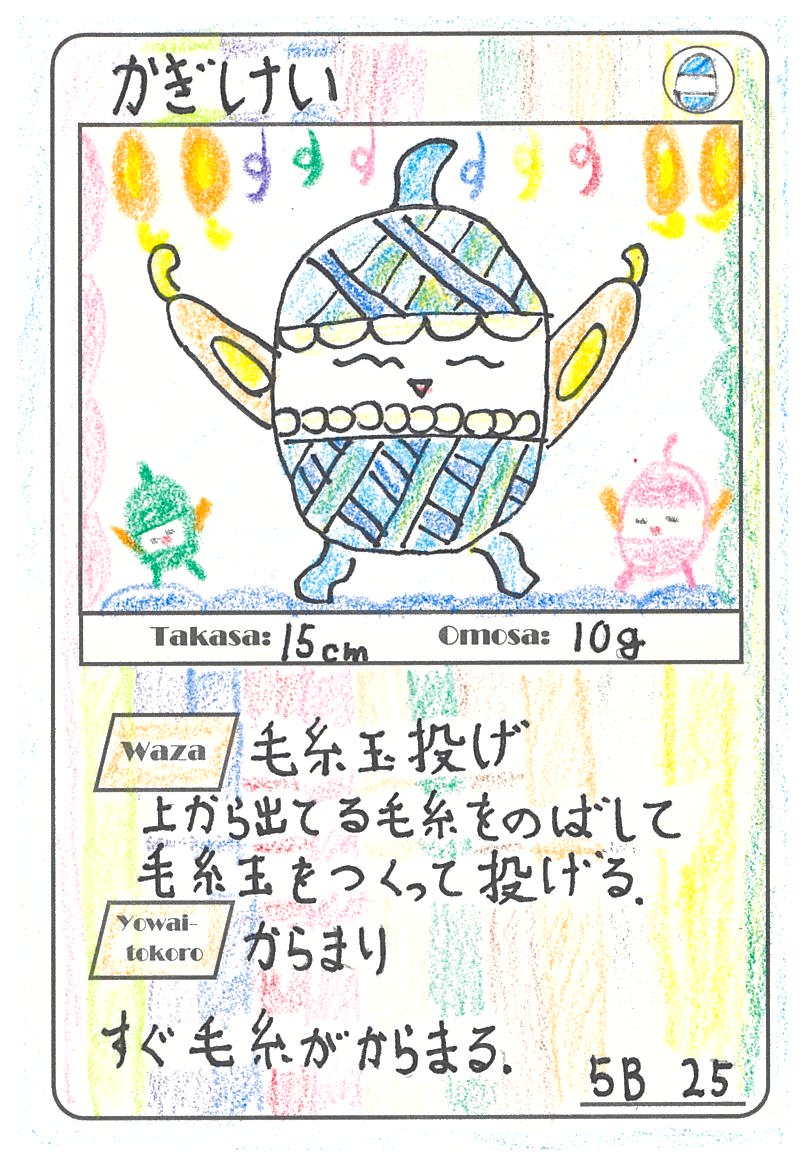 かぎしけい
Takasa: 15cm Omosa: 10g
Waza 毛糸玉投げ
上から出てる毛糸をのばして
毛糸玉をつくって投げる.
Yowai-
tokoro からまり
すぐ毛糸がからまる.
5B 25